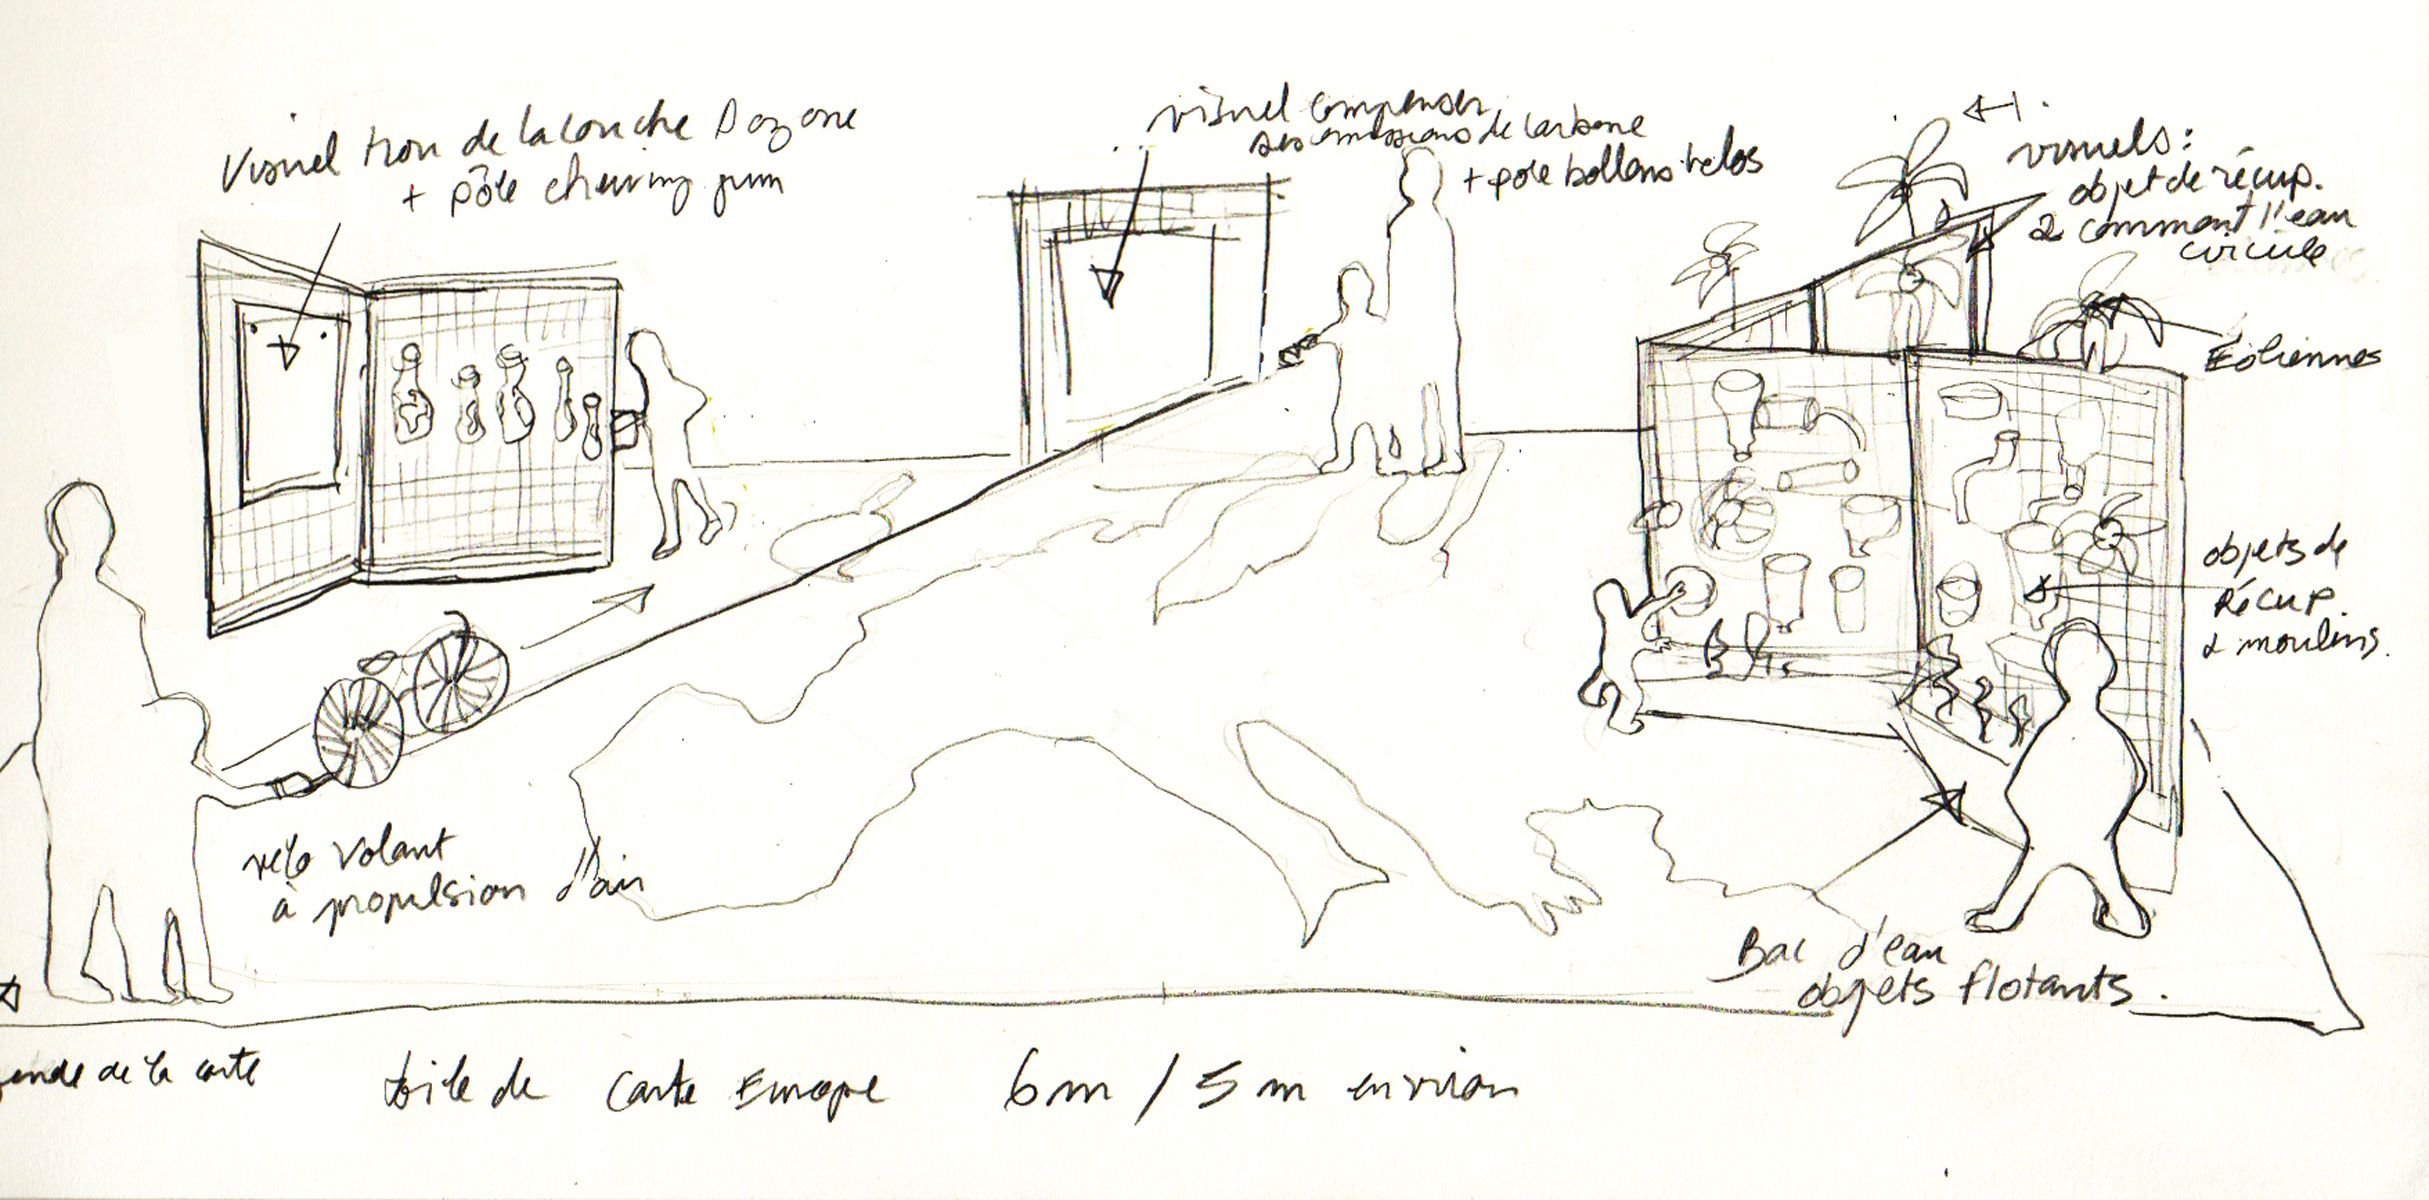 Visuel trou de la couche D'ozone
+ pôle chewing gum
visuel compenser
ses émissions de carbone
+ pole ballons vélos
visuels :
objet de récup.
& comment l'eau
circule
Eoliennes
objets de
Récup.
& moulins.
vélo volant
à propulsion d'air
Bac d'eau
objets flotants.
de la carte
toile de carte Europe 6m / 5m environ